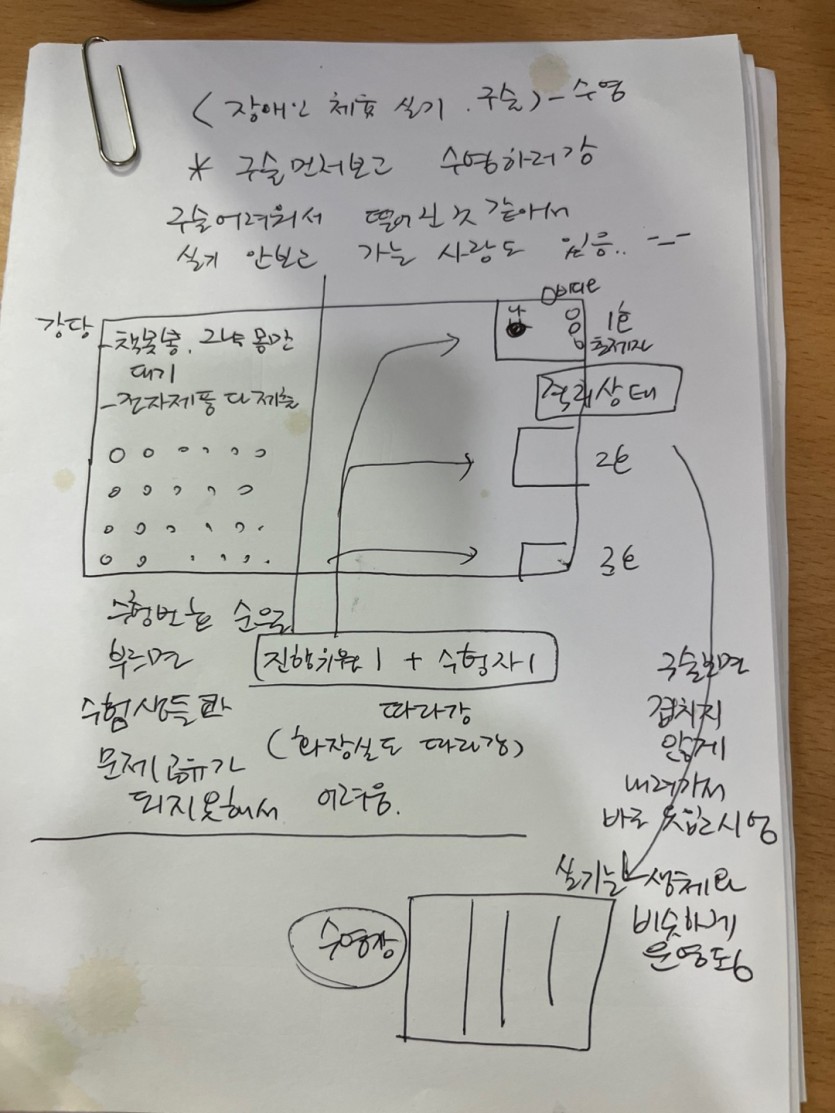 (장애인 체육 실기. 구술) - 수영
* 구술먼저보고 수영하러감
구술어려워서 떨어진것 같아서
실기 안보고 가는 사람도 있음.. -_-
강당
- 책못봄, 그냥 몸만
대기
- 전자제품 다 제출
비디오
나
1호
출제자
격리상태
2호
3호
수험번호 순으로
부르면
진행위원 1 + 수험자 1
따라감
(화장실도 따라감)
수험생들과
문제공유가
되지못해서 어려움.
구술보면
겹치지
않게
내려가서
바로 옷입고시험
실기는 생체와
비슷하게
운영도
수영장